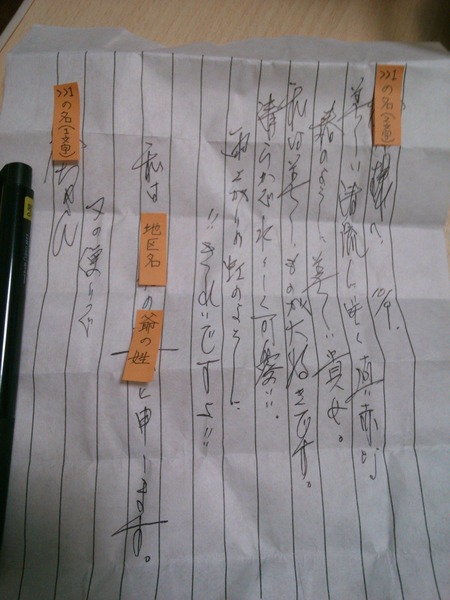 >>1の名 様へ 10/9.
美しい清流に咲く真い赤な
花のように美しい貴女。
私は美しいものが大好きです。
清らかで水々しく可愛い。
雨上がりの虹のように
!!きれいですよ!!
私は 地区名 の 爺の姓 と申します。
又の便りで
>>1の名 ちゃん